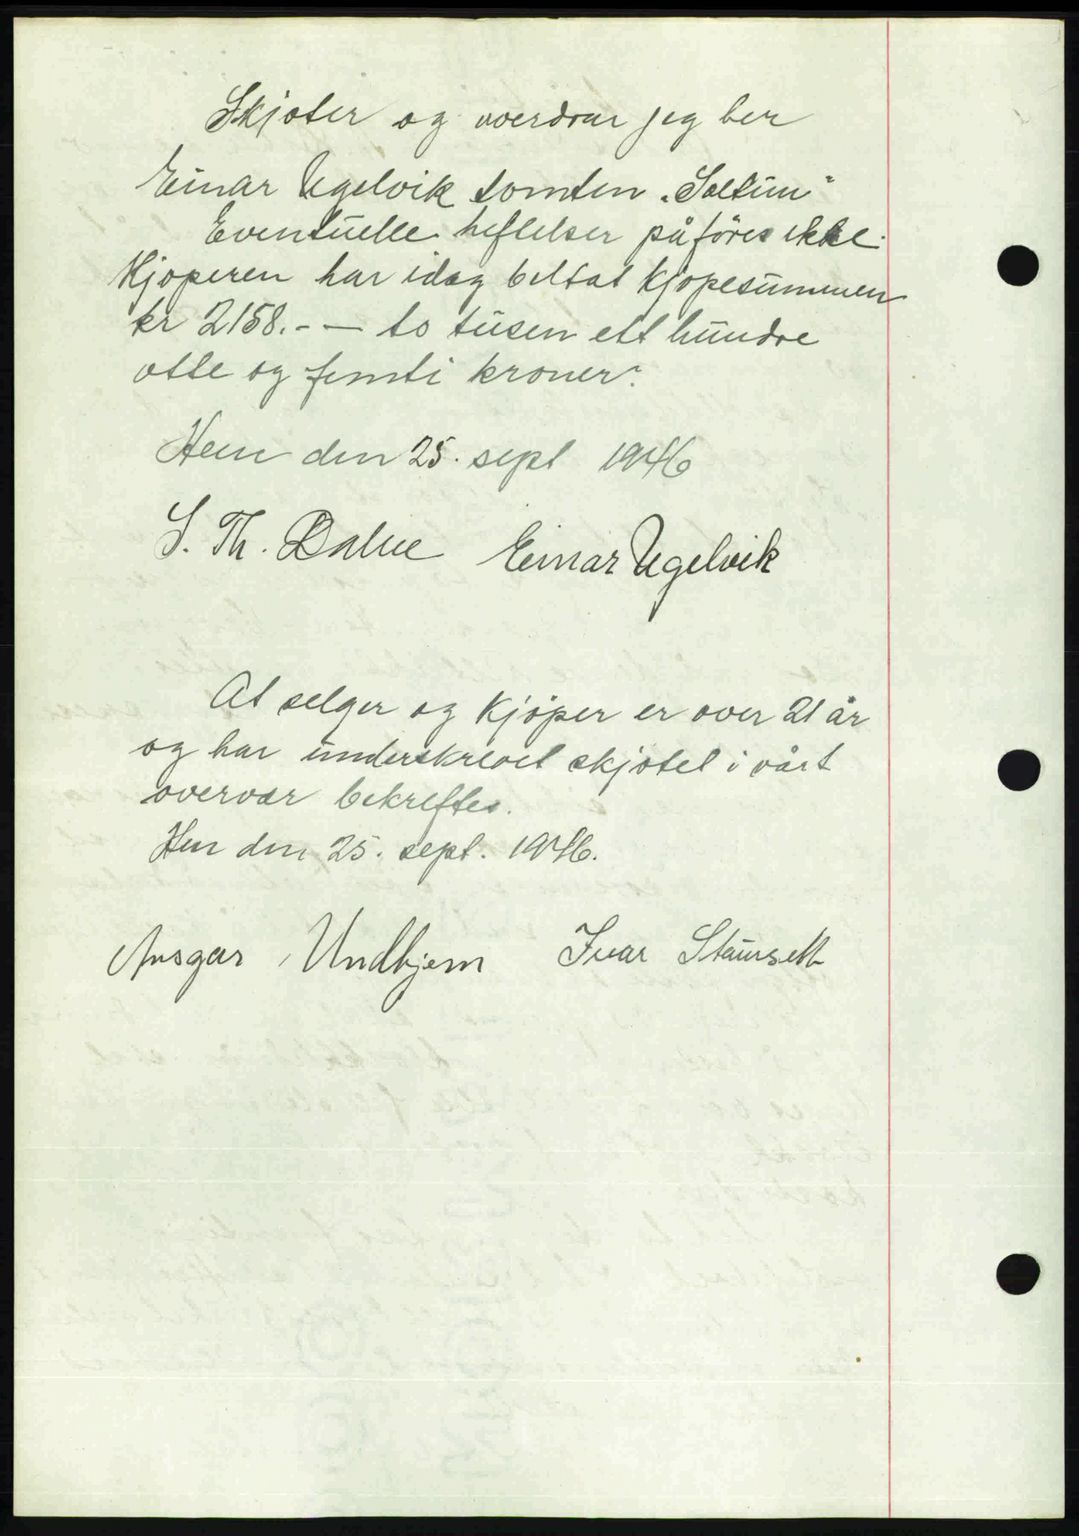 Skjøter og overdrar jeg her
Einar Ugelvik tomten "Soltun"
Eventuelle heftelser påføres ikke.
Kjøperen har idag beltat kjøpesummen
kr 2158.- — to tusen ett hundre
otte og femti kroner.
Hem den 25. sept 1946
S. Th. Einar Ugelvik
At selger og kjøper er over 21 år
og har underskrevet skjøtet i vårt
overvær bekreftes.
Hem den 25. sept. 1946.
Ansgar Undhjem Ivar Staurset